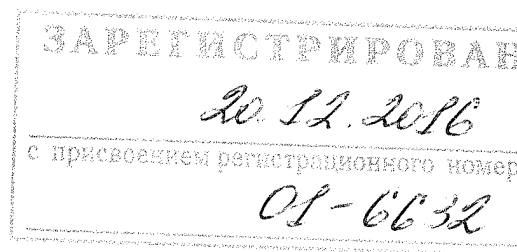 ЗАРЕГИСТРИРОВАН
20.12.2016
с присвоением регистрационного номер
01-6632